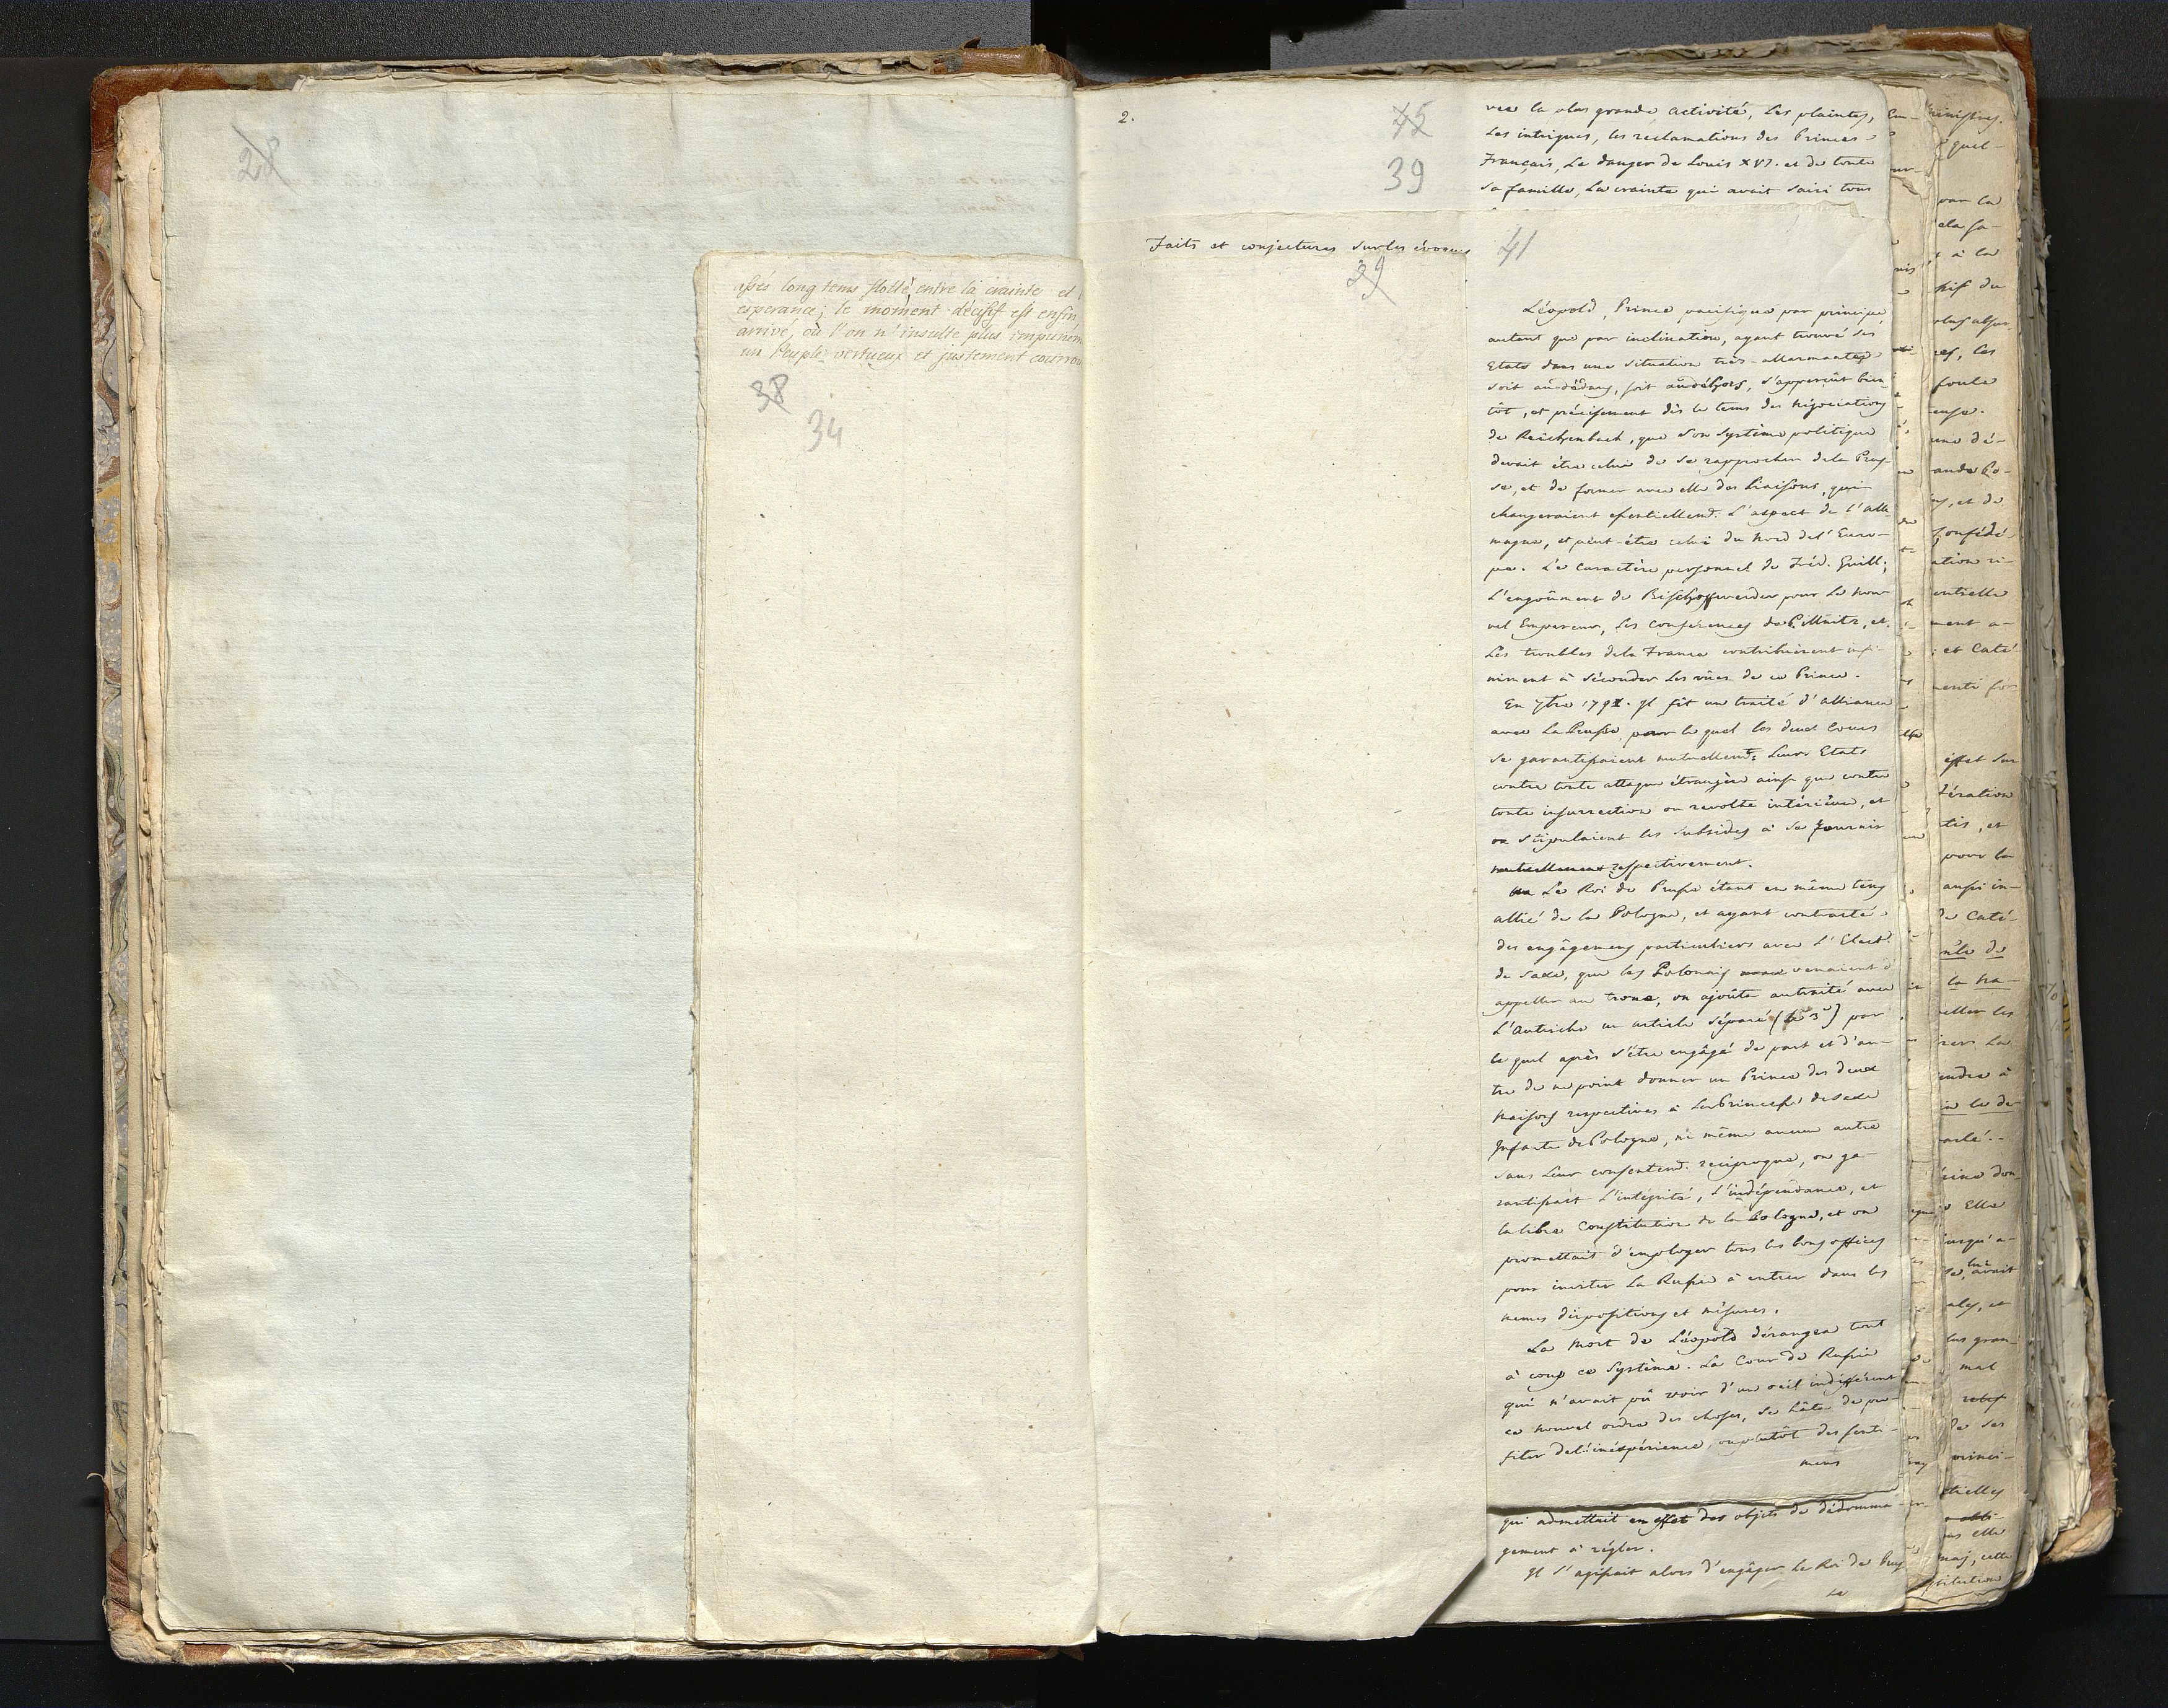 28
assés long tems flotté entre la crainte et l
esperance; le moment décisif est enfin
arrivé, où l'on n'insulte plus impuném
un Peuple vertueux et justement courrou
38
34
2.
45
39
vec la plus grande activité, Les plaintes,
Les intrigues, les reclamations des Princes
Français, Le danger de Louis XVI. et de toute
sa famille, La crainte qui avait saisi tous
Faits et conjectures sur les évenem
39
41
Léopold, Prince pacifique par principe
autant que par inclination, ayant trouvé ses
Etats dans une situation très-allarmantes
soit au-dédans, soit audéhors, s'apperçût bien-
tôt, et précisement dès le tems des négociations
de Reichenbach, que son système politique
devait être celui de se rapprocher de la Prus-
se, et de former avec elle des liaisons, qui
changeraient essentiellemt. L'aspect de l'alle-
magne, et peut-être celui du Nord de l'Euro-
pe. Le caractère personnel de Fréd. Guill;
L'engoûment de Bischoffwerder pour le nou-
vel Empereur, les conférences de Pillnitz, et
Les troubles de la France contribuèrent infi-
niment à séconder les vûes de ce Prince.
En 7bre 1791. Il fit un traité d'alliance
avec La Prusse, par le quel les deux cours
se garantissaient mutuellemt: Leurs Etats
contre toute attaque étrangère ainsi que contre
toute insurrection ou revolte intérieure, et
on stipulaient les subsides à se fournir
mutuellement respectivement.
Le Roi de Prusse étant en même tems
allié de la Pologne, et ayant contracté
des engâgemens particuliers avec L'Elect.
de Saxe, que les Polonais venaient d'
appeller au trone, on ajoûta autraité avec
L'Autriche un article séparé (le 3e) par
le quel après s'être engâgé de part et d'au-
tre de ne point donner un Prince des deux
Maisons respectives à La Princesse de Saxe
Infante de Pologne, ni même aucun autre
sans leur consentemt. reciproque, on ga-
rantissait L'intégrité, l'indépendance, et
la libre Constitution de la Pologne, et on
promettait d'employer tous les bons offices
pour inviter La Russie à entrer dans les
memes dispositions et mésures.
La Mort de Léopold dérangea tout
à coup ce système. La Cour de Russie
qui n'avait pû voir d'un oeil indifférent
ce nouvel ordre des choses, se hâta de pro-
fiter del'inéxpérience, ouplutôt des senti-
mens
qui admettait en effet des objets de dédomma-
gement à régler.
Il s'agissait alors d'engâger le Roi de Prus
se